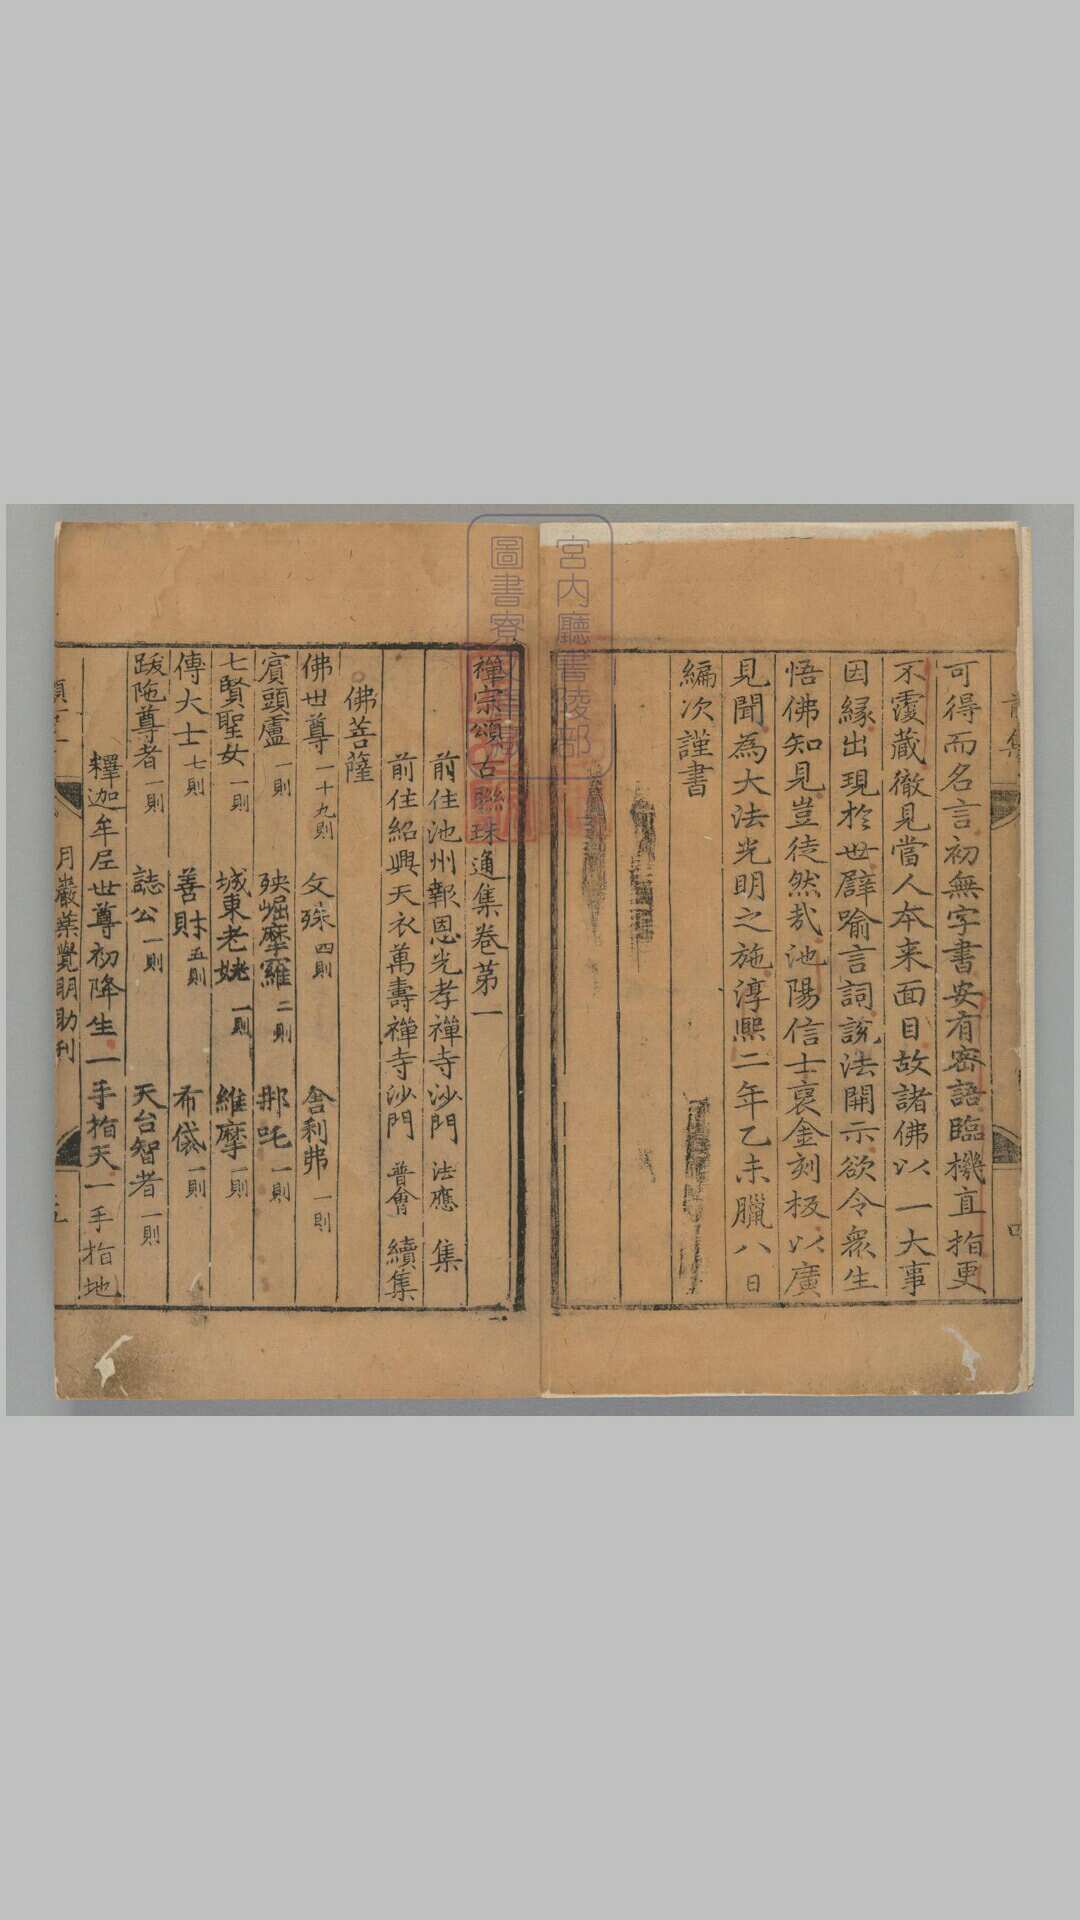 可得而名言初無字書安有密語臨機直指更
不覆藏徹見當人本来面目故諸佛以一大事
因緣出現於世譬喻言詞說法開示欲令衆生
悟佛知見豈徒然㢤池陽信士裒金刻板以廣
見聞為大法光明之施淳熙二年乙未臘八日
編次謹書
宮内廳書陵部
圖書寮
禪宗頌古聯珠通集卷第一
前住池州報恩光孝禪寺沙門 法應 集
前住紹興天衣萬壽禪寺沙門 普會 續集
佛菩薩
佛世尊一十九則 文殊四則 舍利弗一則
賓頭盧一則 殃崛摩羅二則 那吒一則
七賢聖女一則 城東老姥一則 維摩一則
傅大士七則 善財五則 布袋一則
跋陁尊者一則 誌公一則 天台智者一則
釋迦牟尼世尊初降生一手指天一手指地
月巖葉覺明助刊